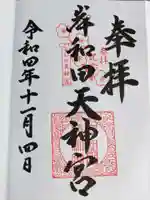 奉拝
岸和田天神宮
令和四年十一月四日